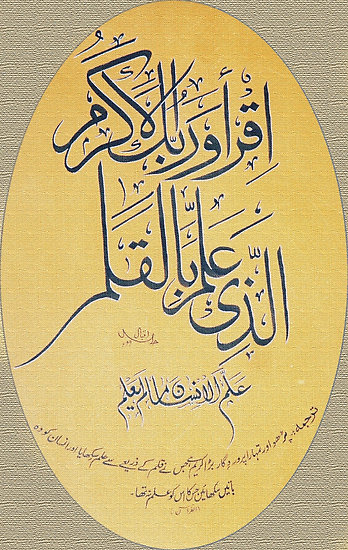 اقرأ وربك الاكرم
الذی علم بالقلم
علم الانسان مالم یعلم
ترجمہ: پڑھو اور تمہارا پروردگار بڑا کریم ہے جس نے قلم کے ذریعے سے علم سکھایا اور انسان کو وہ
باتیں سکھائیں جن کا اس کو علم نہ تھا۔